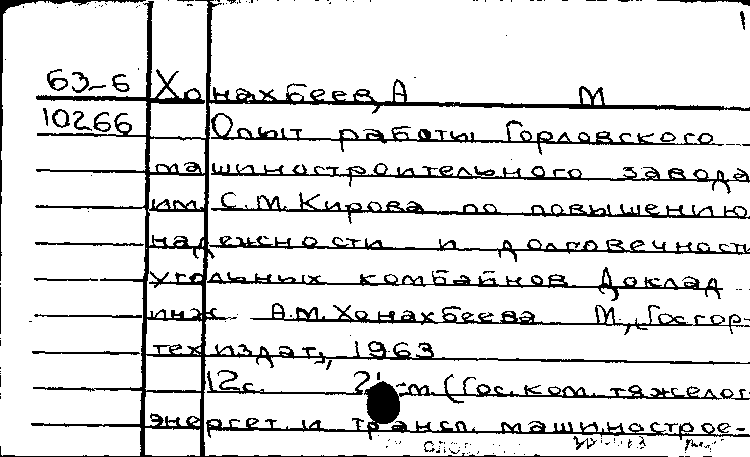 63-6 Хонахбеев, А М
10266 Опыт работы Горловского
машиностроительного завода
им. С.М. Кирова по повышению
надежности и долговечности
угольных комбайнов. Доклад
инж. А.М. Хонахбеева М., "Госгор-
техиздат", 1963
12с. 21 т. (Гос. ком. тяжелог.
энергет. и трансп. машинострое-